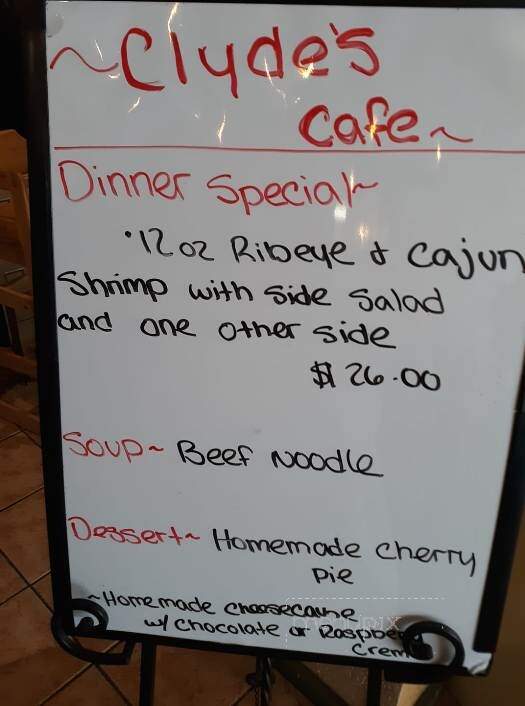 ~Clyde's
Cafe~
Dinner Special~
•12 oz Ribeye & Cajun
Shrimp with side salad
and one other side
$26.00
Soup~ Beef Noodle
Dessert~ Homemade Cherry
Pie
~Homemade
w/ Chocolate or